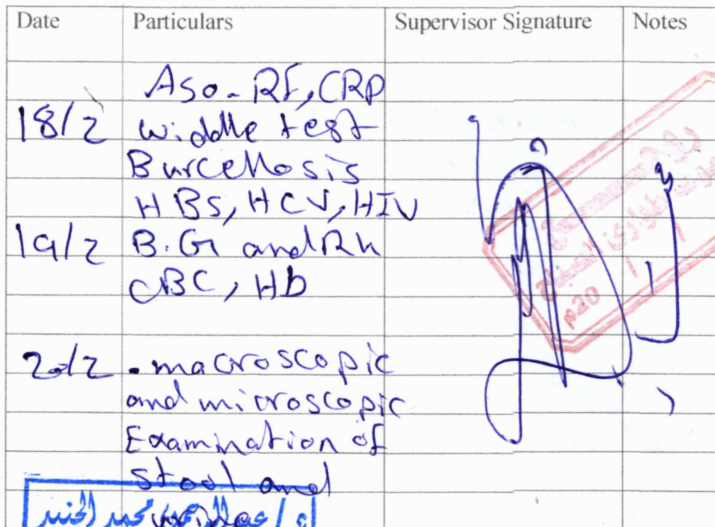 Date Particulars Supervisor Signature Notes
Aso-RF, CRP
18/2 widdle test
Burcellosis
HBs, HCV, HIV
19/2 B.G and Rh
CBC, Hb
20/2 - macroscopic
and microscopic
Examination of
stool and
محمد الجنيد